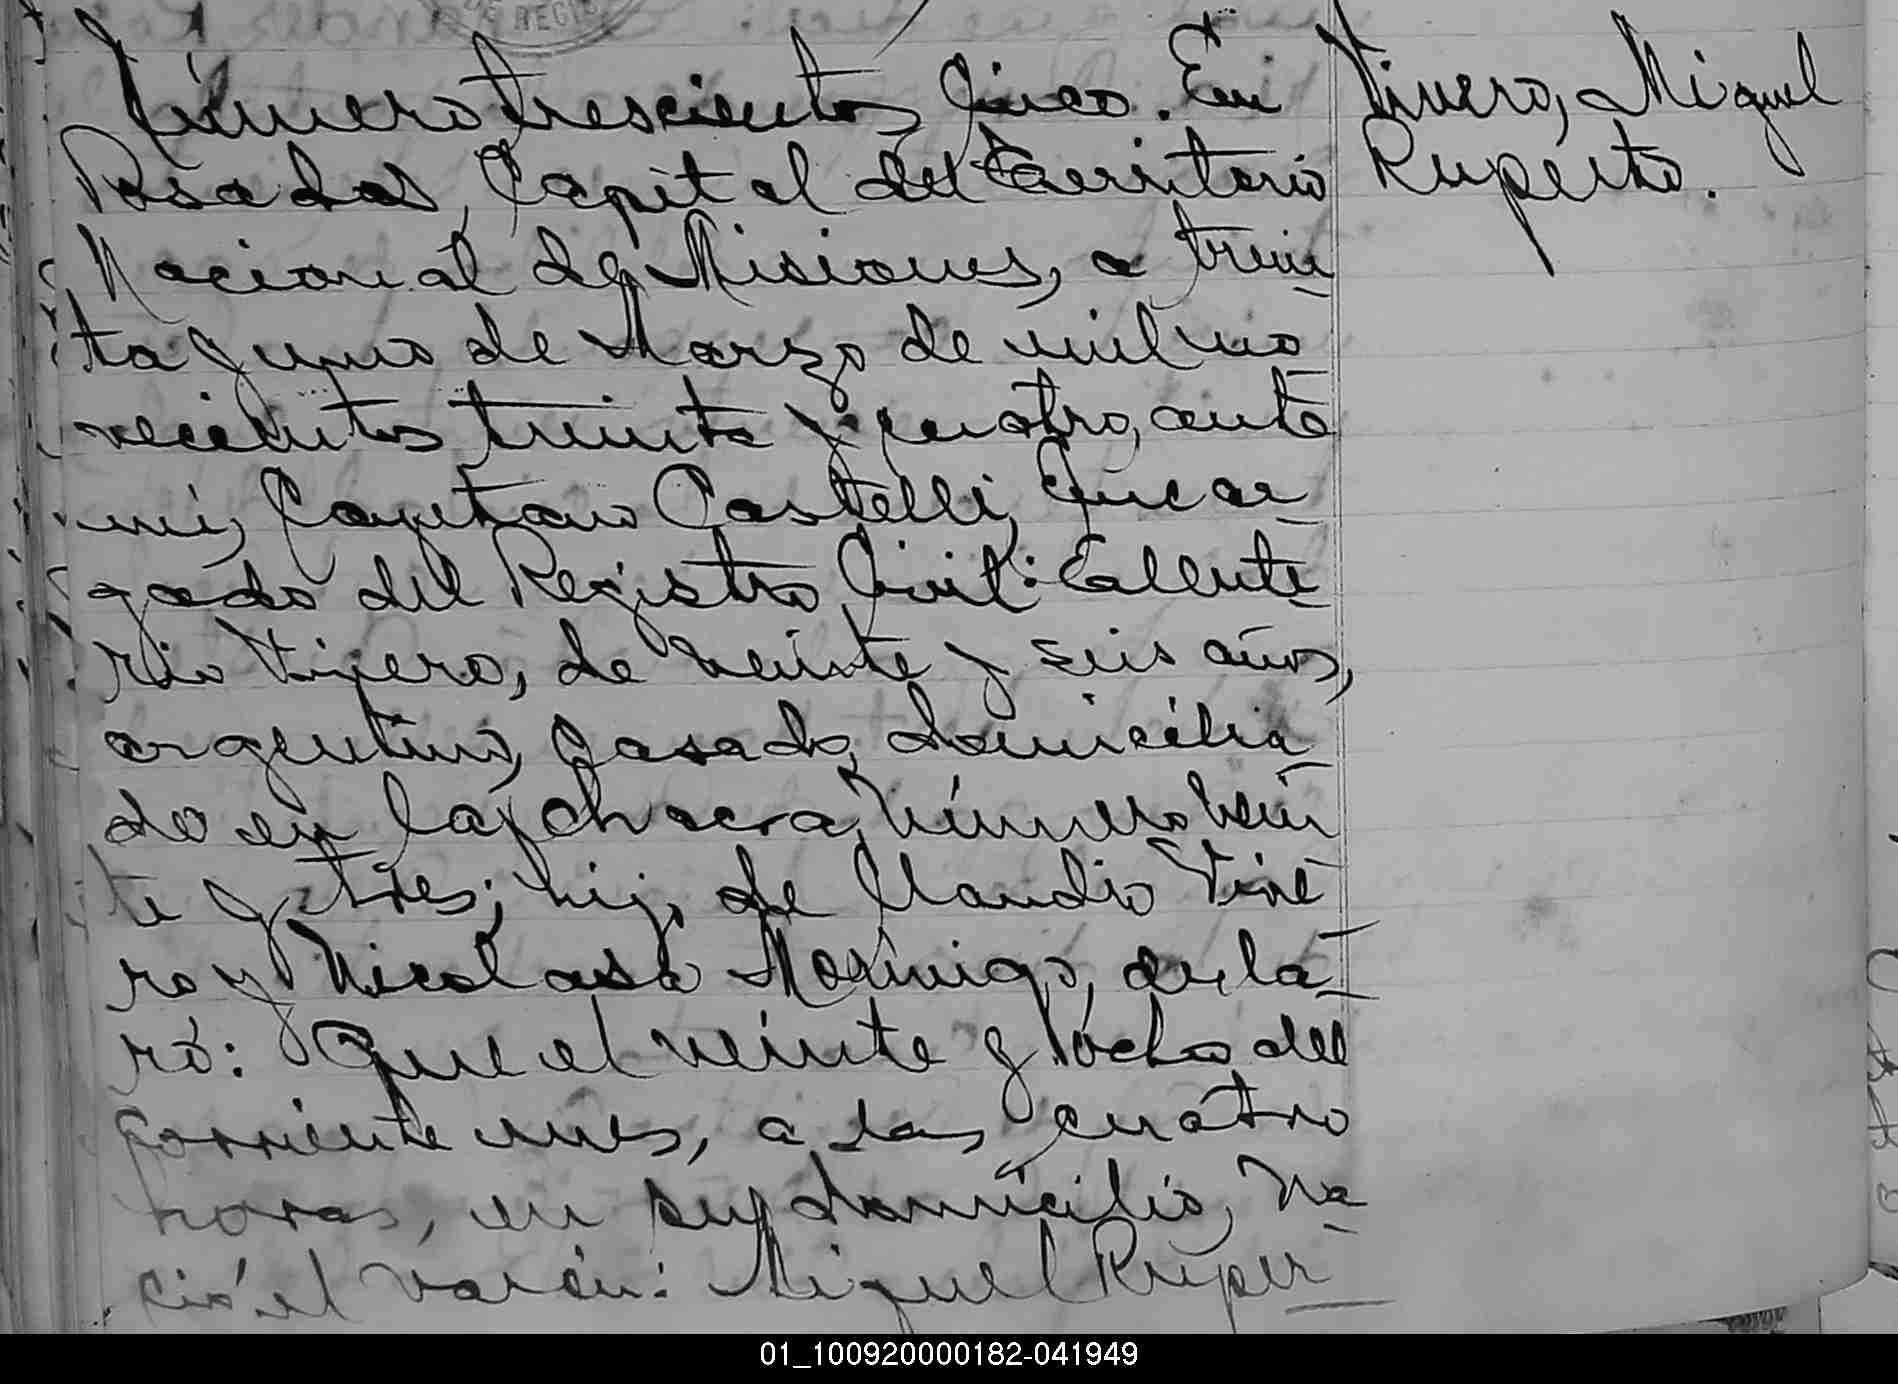 DE REGIS
Número trescientos cinco. En
Posadas, Capital del Territorio
Nacional de Misiones, a trein
ta y uno de Marzo de mil no
vecientos treinta y cuatro, ante
mi, Cayetano Castelli, Encar
gado del Registro Civil: Eleute
rio Vivero, de veinte y seis años,
argentino, casado, domicilia
do en la chacra número vein
te y tres; hijo de Claudio Vive
ro y Nicolasa Morinigo, decla
ró: Que el veinte y ocho del
corriente mes, a las cuatro
horas, en su domicilio, na
ció el varón: Miguel Ruper
Vivero, Miguel
Ruperto.
01_100920000182-041949